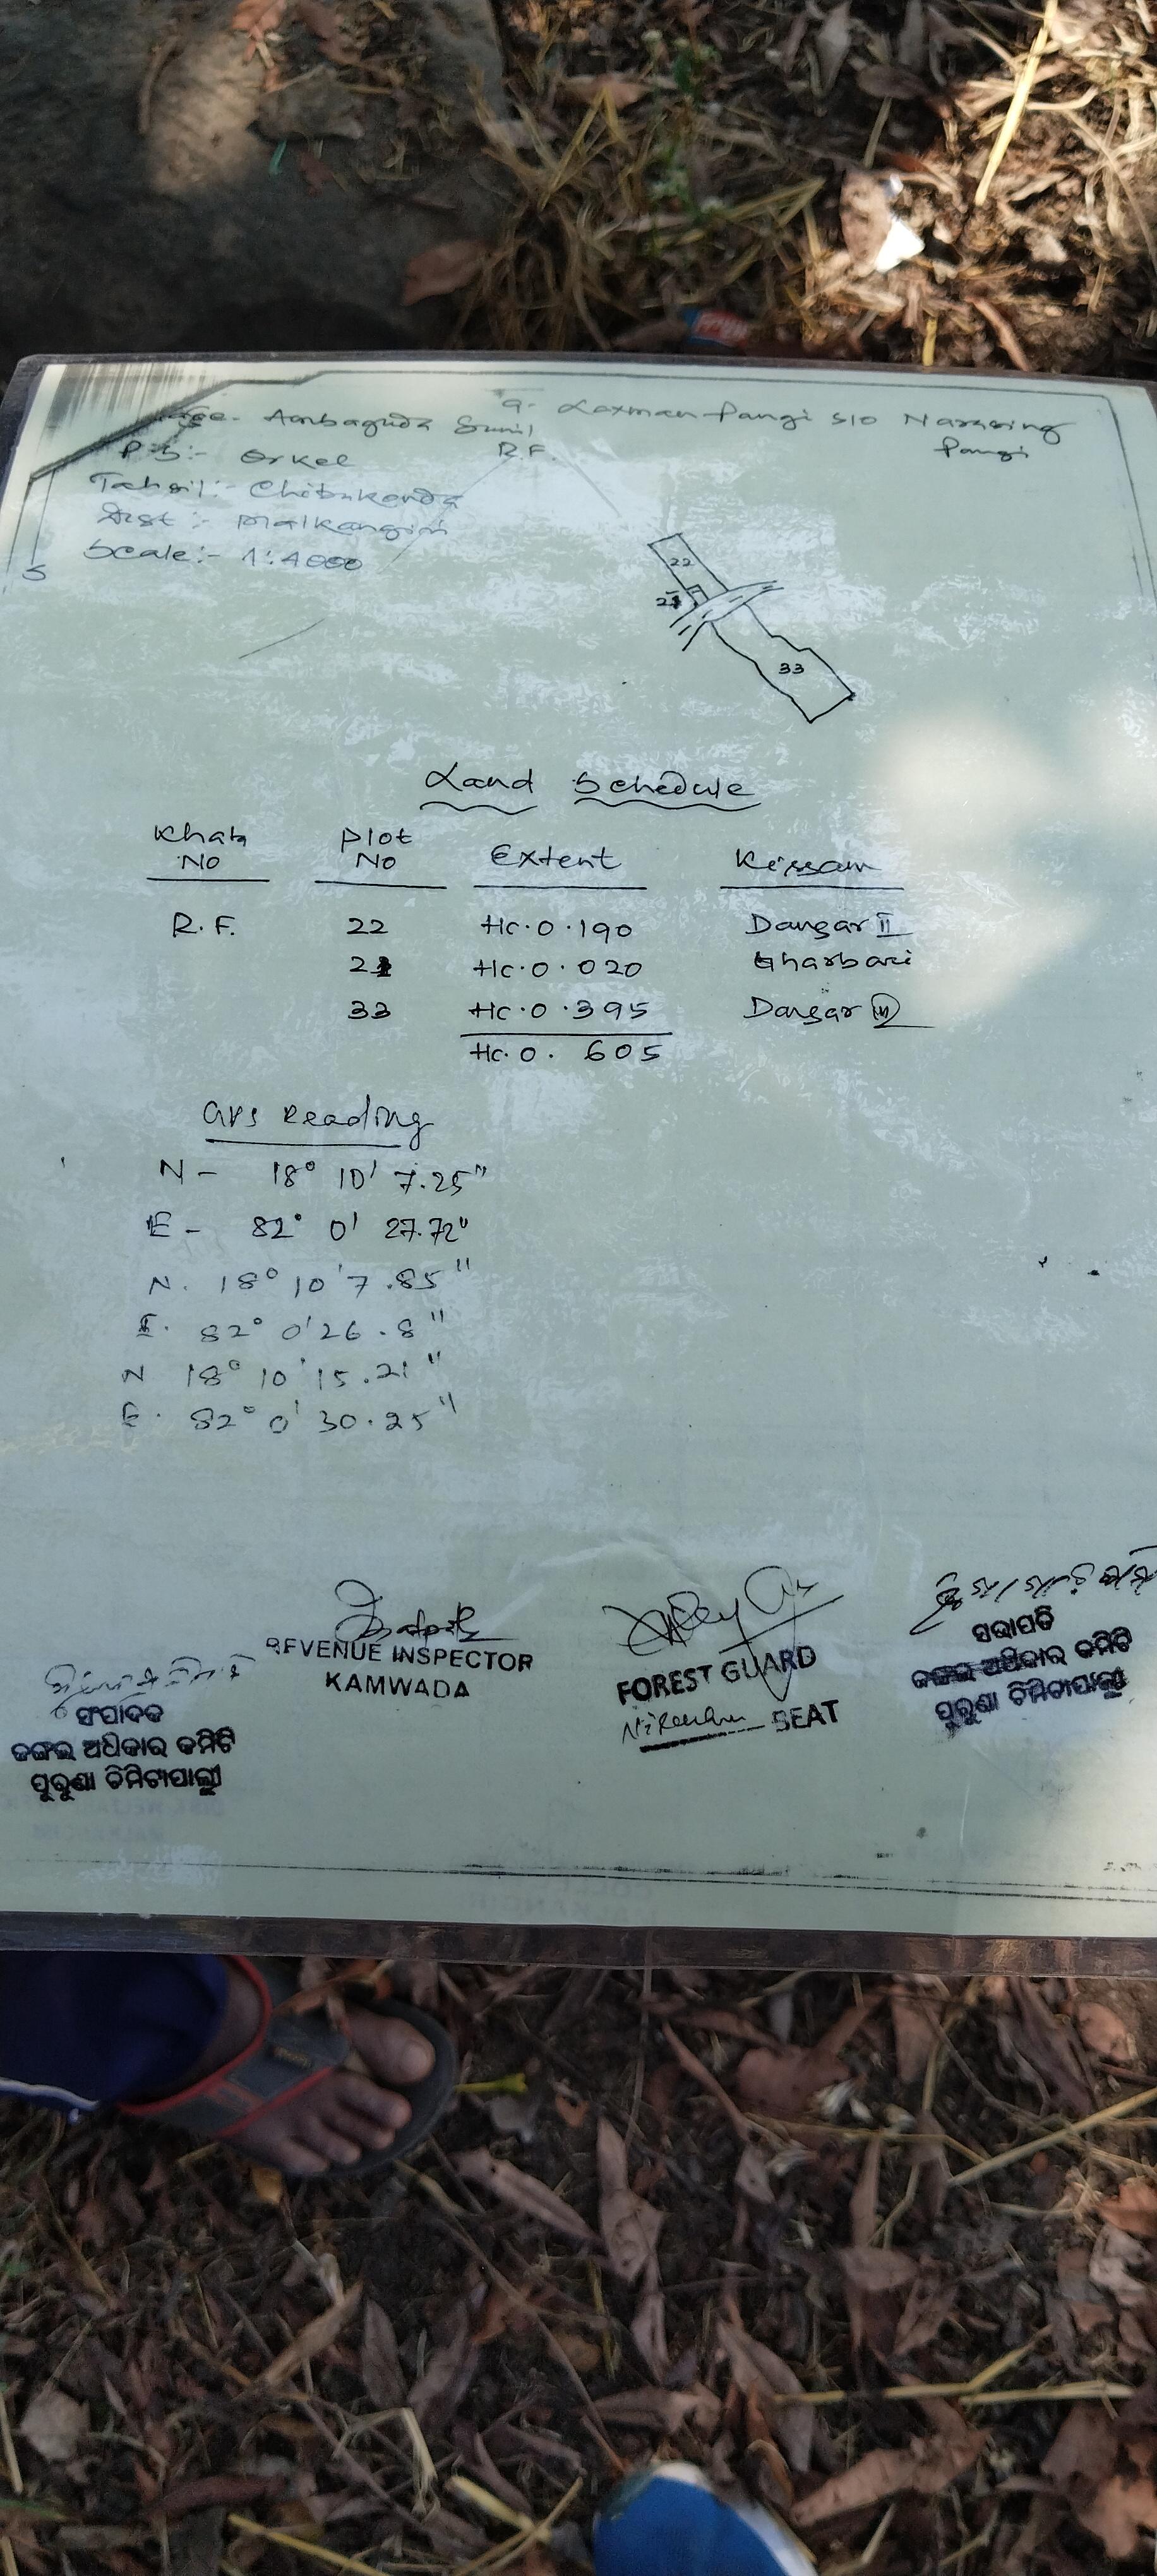 Ambaguda Sunil
R.F.
9- Laxman Pangi S/o Narasing
Pangi
P.S:- Orkel
Tahsil:- Chitrakonda
Dist:- Malkangiri
Scale:- 1:4000
S
22
21
33
Land Schedule
Khata No Plot No Extent Kissam
R.F. 22 Hc.0.190 Dangar II
21 Hc.0.020 Gharbari
33 Hc.0.395 Dangar
Hc.0.605
GPS Reading
N- 18° 10' 7.25"
E- 82° 0' 27.72"
N. 18° 10' 7.85"
E. 82° 0' 26.8"
N 18° 10' 15.21"
E. 82° 0' 30.25"
REVENUE INSPECTOR
KAMWADA
FOREST GUARD
BEAT
ସଭାପତି
ଜଙ୍ଗଲ ଅଧିକାର କମିଟି
ପୁରୁଣା ଚିମିଟାପାଲ୍ଲୀ
ସଂପାଦକ
ଜଙ୍ଗଲ ଅଧିକାର କମିଟି
ପୁରୁଣା ଚିମିଟାପାଲ୍ଲୀ